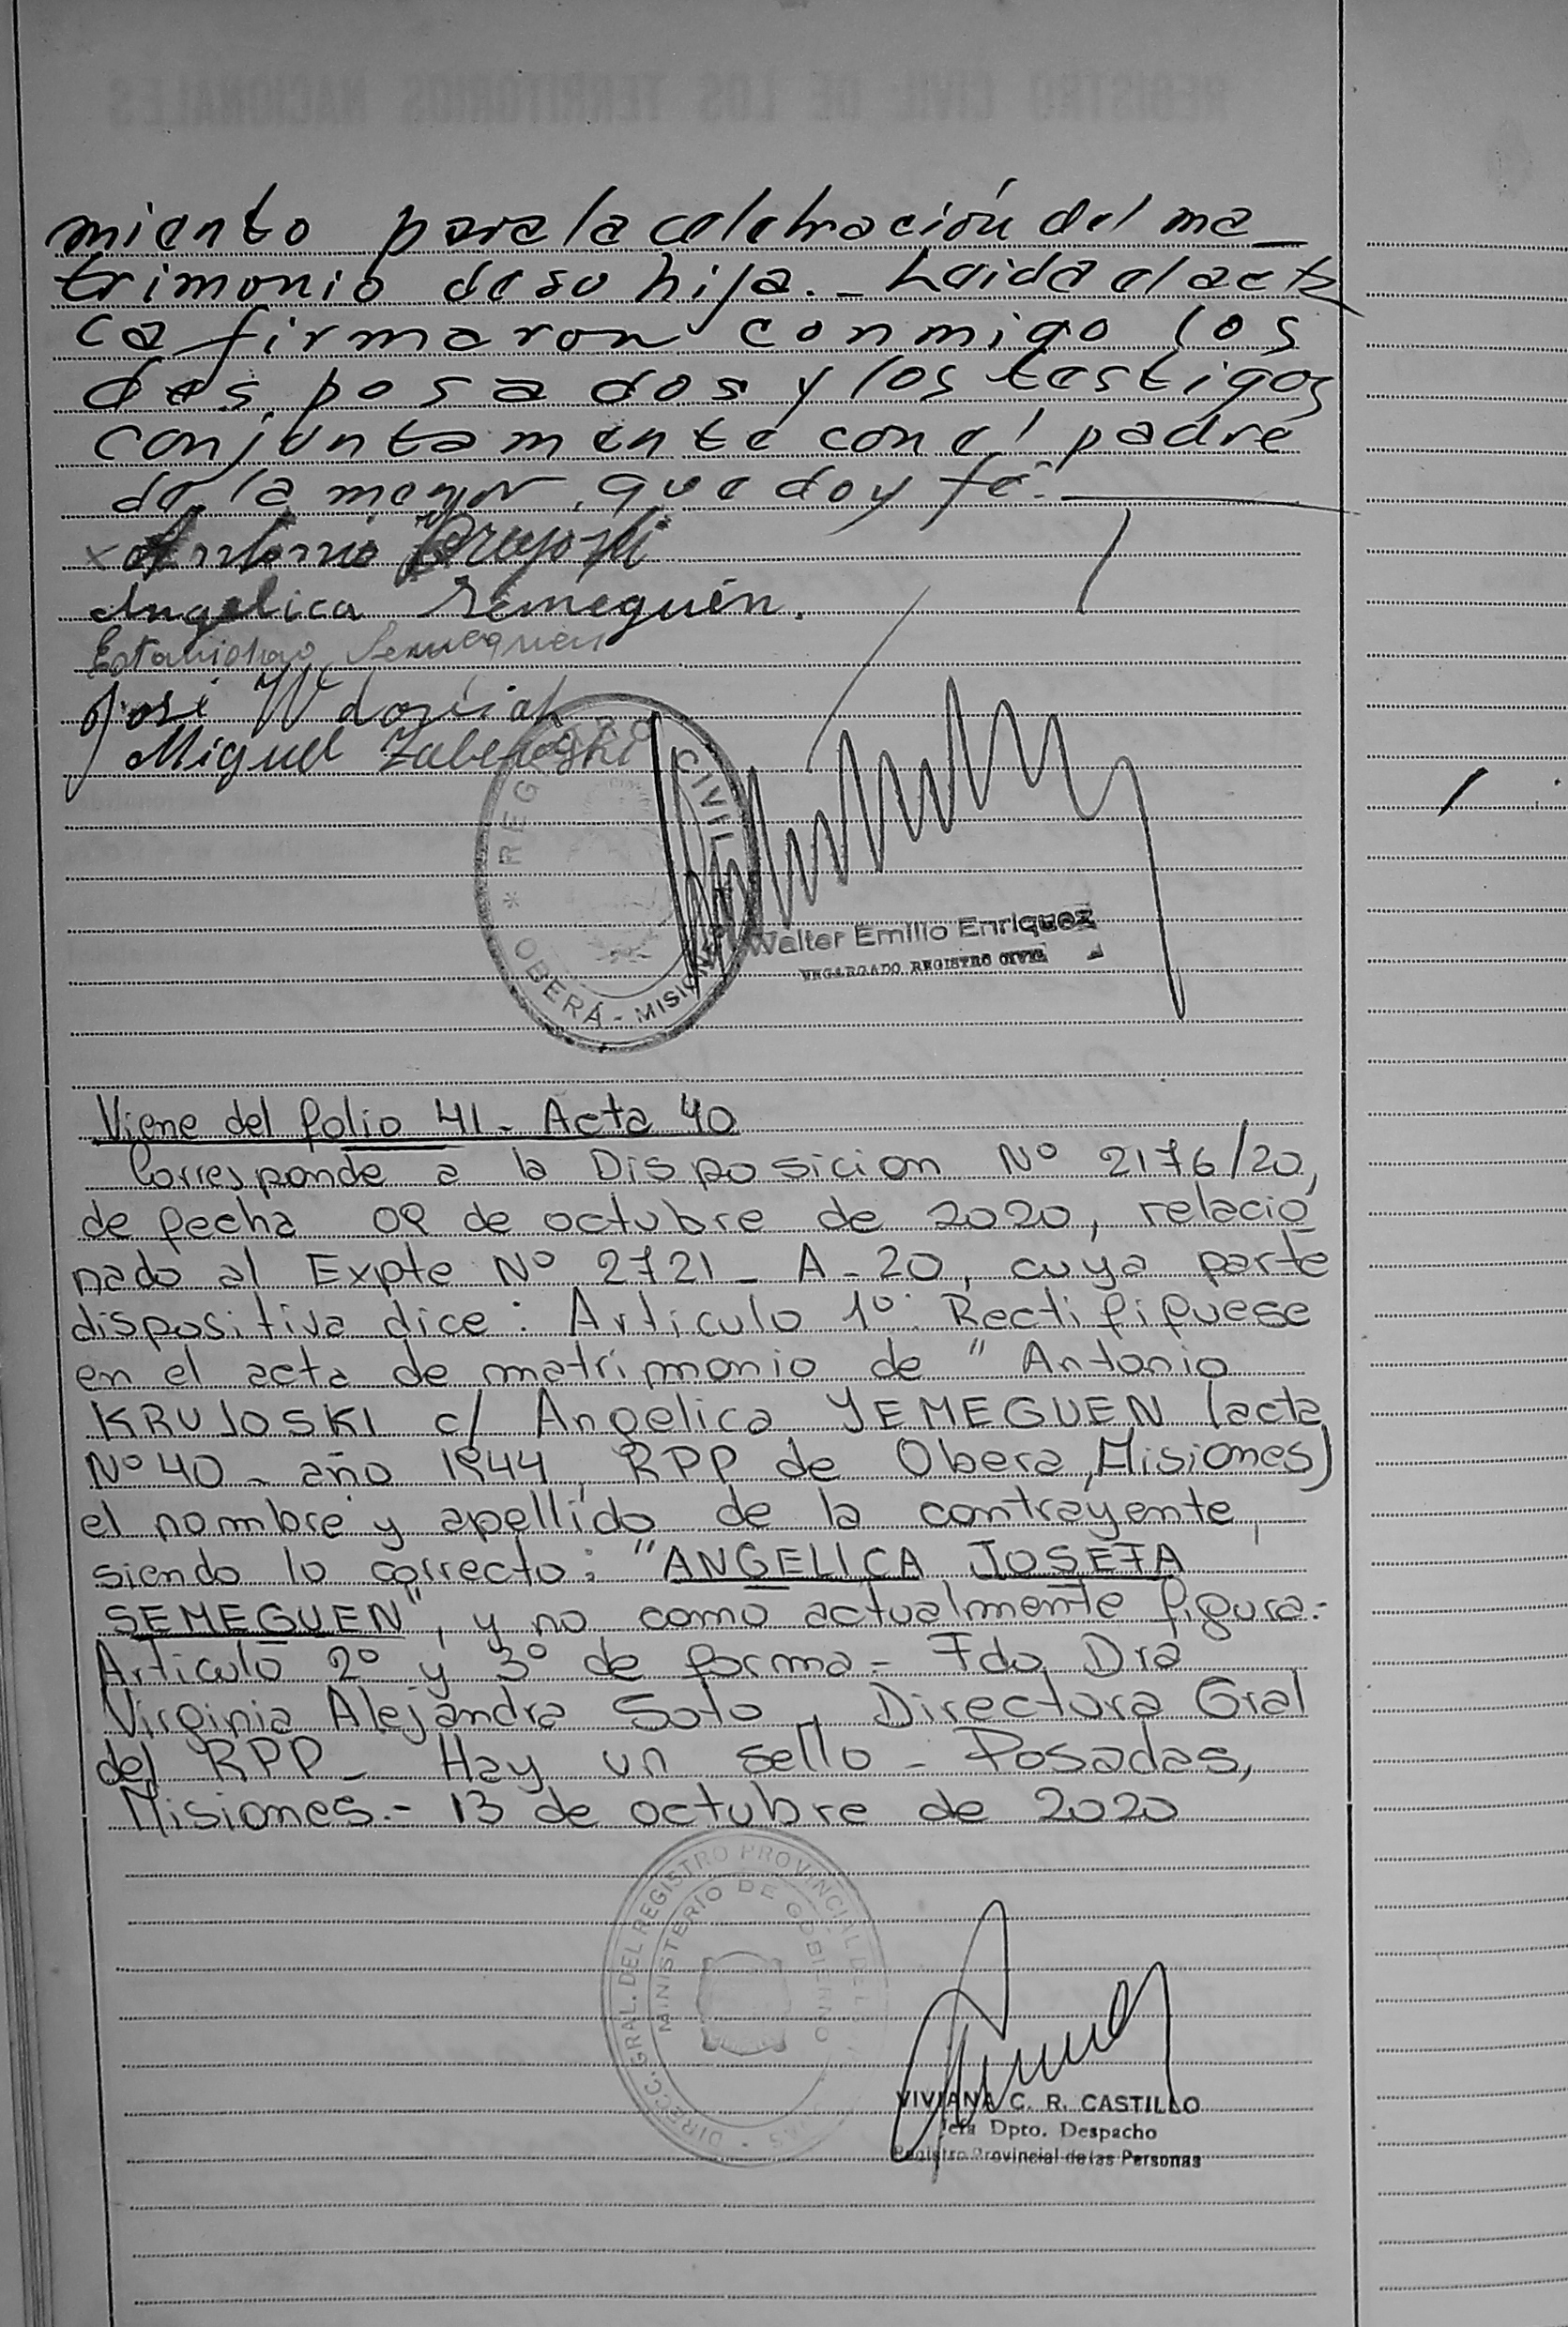 REGISTRO CIVIL DE LOS TERRITORIOS NACIONALES
miento para la celebración del ma_
trimonio de su hija._ Leida el acta
ca firmaron conmigo los
desposados y los testigos
conjuntamente con el padre
de la menor, que doy fé.
x Antonio
Angelica Semeguén.
Estanislao Semeguen
José W
Miguel
REGISTRO CIVIL
* OBERÁ - MISIONES
Walter Emilio Enriquez
ENCARGADO REGISTRO CIVIL
Viene del folio 41 - Acta 40
Corresponde a la Disposicion Nº 2176/20,
de fecha 09 de octubre de 2020, relacio
nado al Expte Nº 2721 - A - 20, cuya parte
dispositiva dice: Articulo 1º: Rectififuese
en el acta de matrimonio de " Antonio
KRUJOSKI c/ Angelica YEMEGUEN (acta
Nº 40 - año 1944, RPP de Obera, Misiones)
el nombre y apellido de la contrayente,
siendo lo correcto: "ANGELICA JOSEFA
SEMEGUEN", y no como actualmente figura.-
Articulo 2º y 3º de forma - Fdo Dra
Virginia Alejandra Soto, Directora Gral
del RPP - Hay un sello - Posadas,
Misiones.- 13 de octubre de 2020
DIRECC. GRAL. DEL REGISTRO PROVINCIAL DE L
MINISTERIO DE GOBIERNO
VIVIANA C. R. CASTILLO
Jefa Dpto. Despacho
Registro Provincial de las Personas